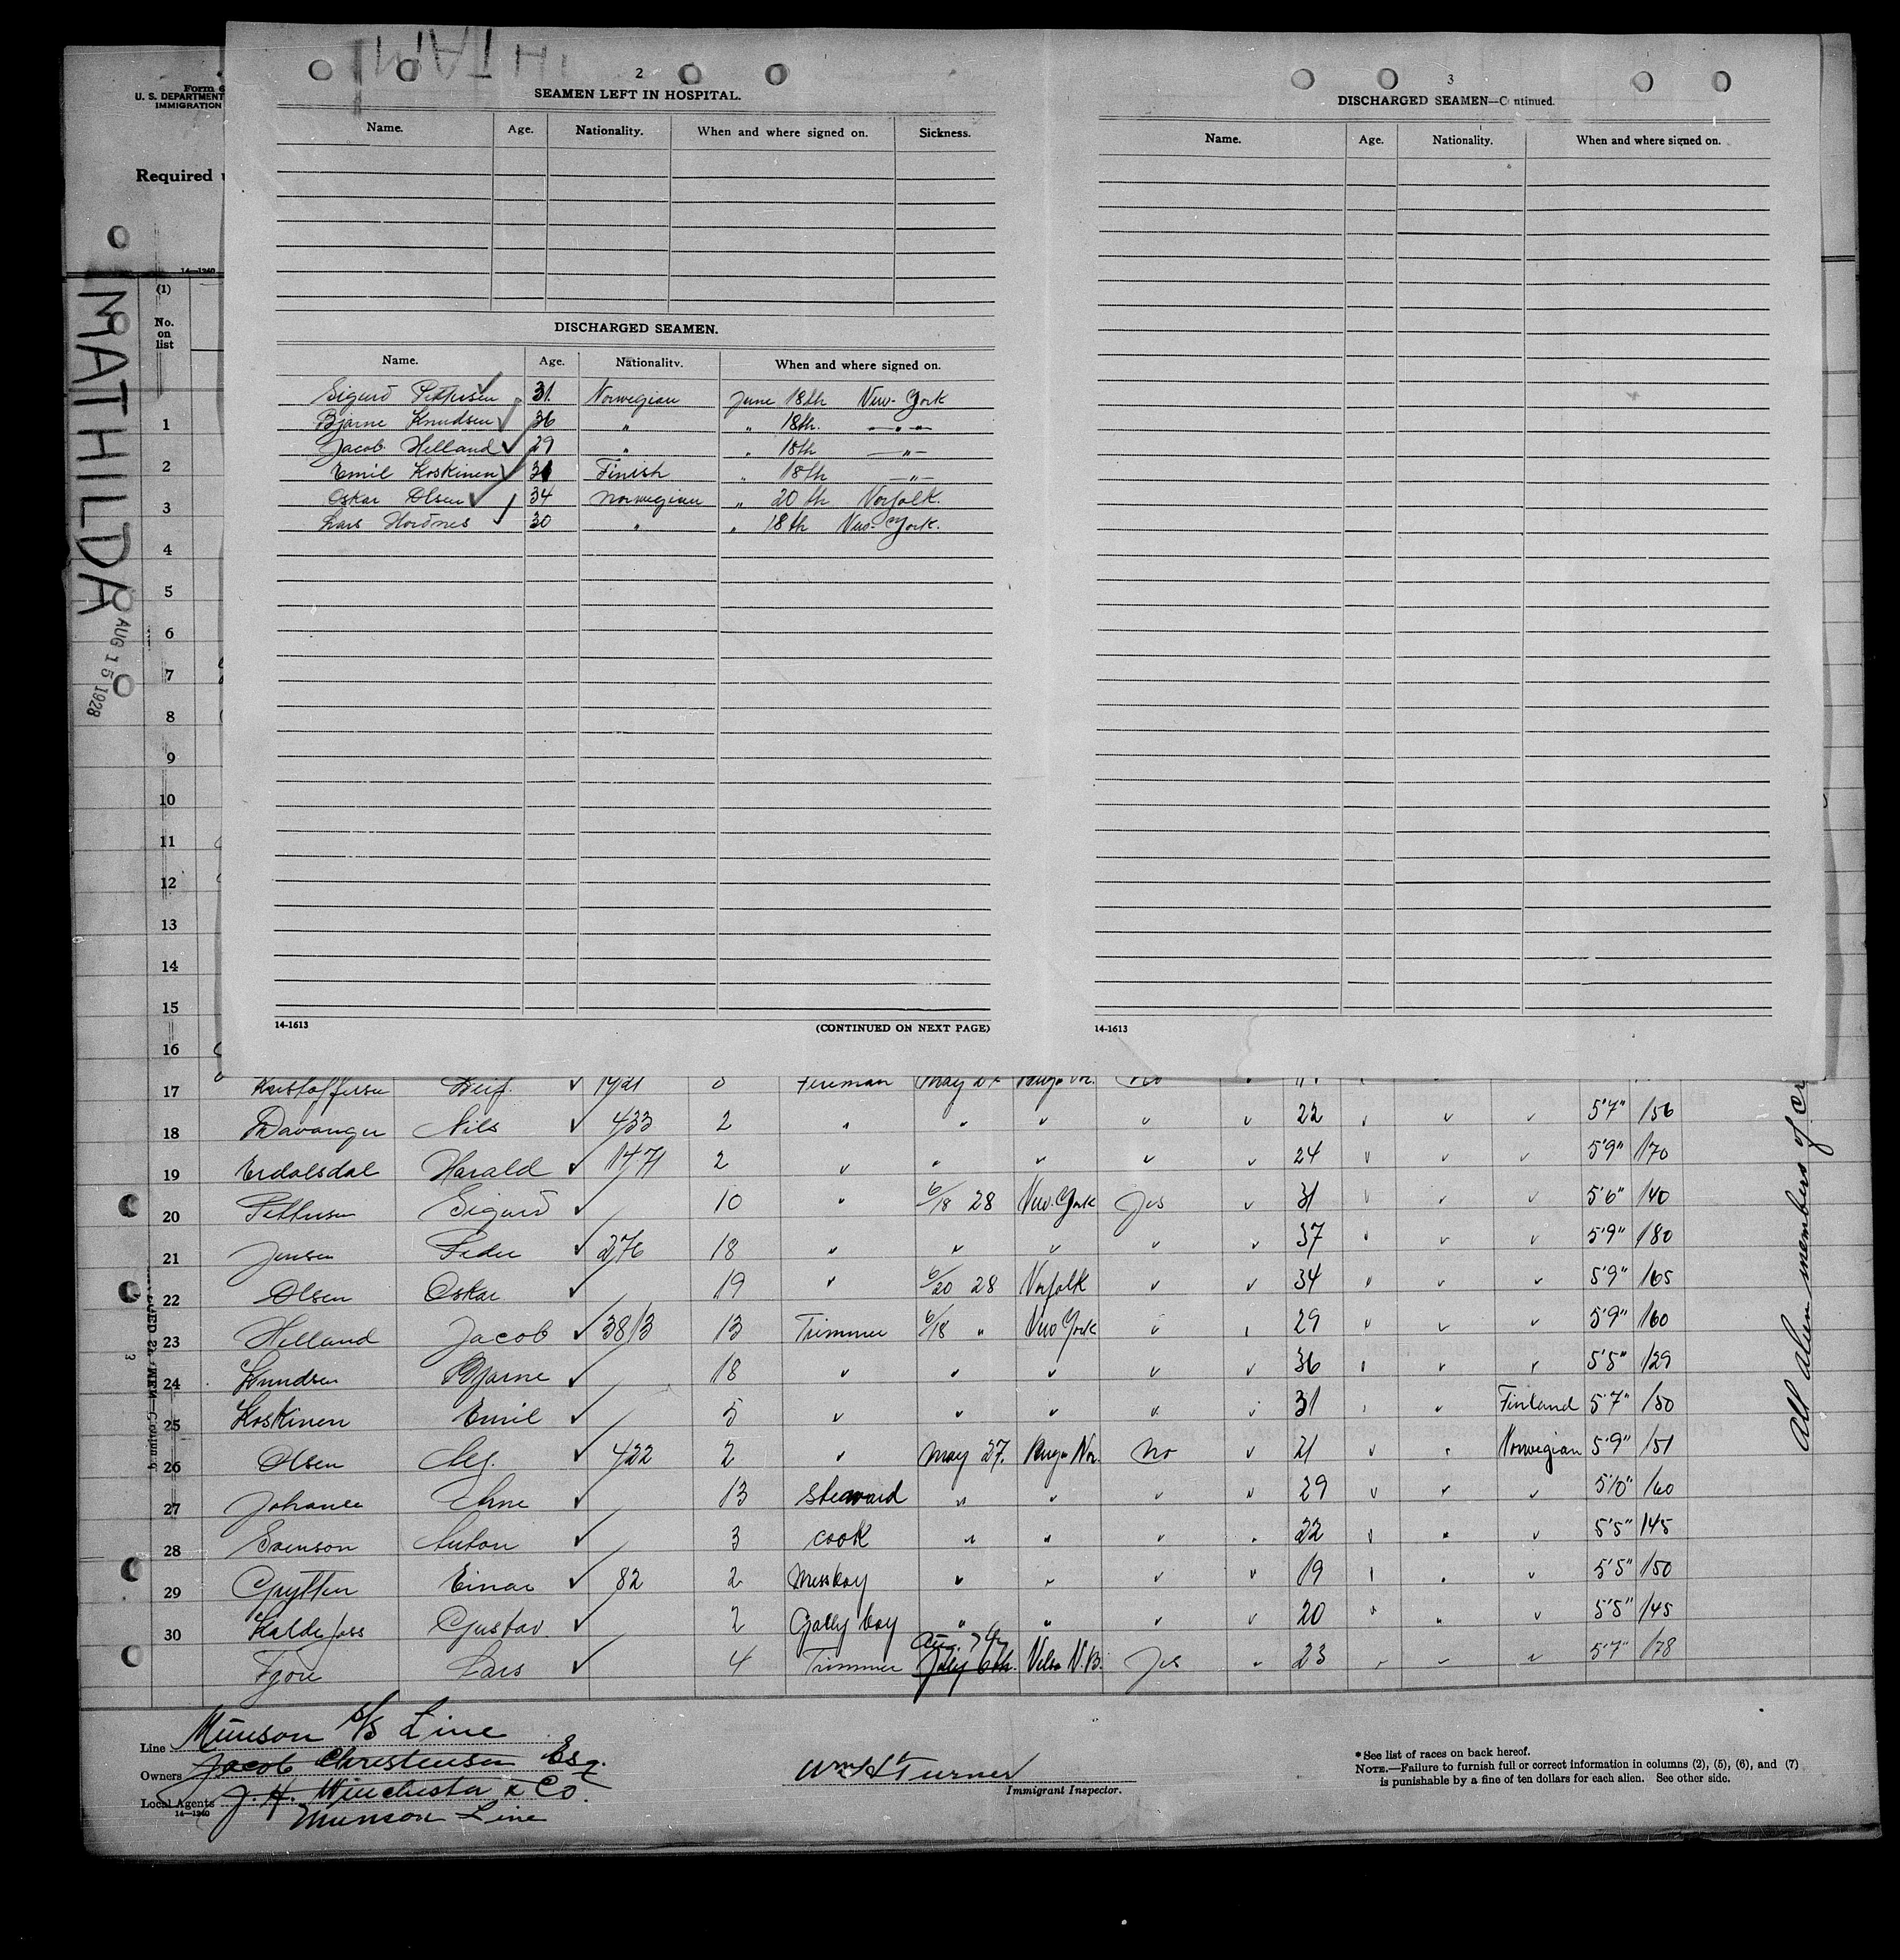 MATHI
Form 6
U. S. DEPARTMENT
IMMIGRATION
Required
14—1240
(1)
No. on list
MATHILDA
AUG 15 1928
2
SEAMEN LEFT IN HOSPITAL.
Name. Age. Nationality. When and where signed on. Sickness.
DISCHARGED SEAMEN.
Name. Age. Nationality. When and where signed on.
Sigurd Pettersen 31 Norwegian June 18th New-York
Bjarne Knudsen 36 " " 18th. — " —
Jacob Helland 29 " " 18th — " —
Emil Koskinen 31 Finish " 18th — " —
Oskar Olsen 34 Norwegian " 20th Norfolk.
Lars Hordnes 30 " " 18th New-York.
14-1613
(CONTINUED ON NEXT PAGE)
3
DISCHARGED SEAMEN—Continued.
Name. Age. Nationality. When and where signed on.
14-1613
1
2
3
4
5
6
7
8
9
10
11
12
13
14
15
16
17 Kristoffersen Leif. Fireman May 27 No
18 Davanger Nils 433 2 " " " " " 22 " " " 5'7" 156
19 Erdalsdal Harald 1471 2 " " " " " 24 " " " 5'9" 170
20 Pettersen Sigurd 10 " 6/18 28 New-York Yes " 31 " " " 5'6" 140
21 Jensen Peder 276 18 " " " " " 37 " " " 5'9" 180
22 Olsen Oskar 19 " 6/20 28 Norfolk " " 34 " " " 5'9" 165
23 Helland Jacob 3813 13 Trimmer 6/18 " New York " " 29 " " " 5'9" 160
24 Knudsen Bjarne 18 " " " " " 36 " " " 5'5" 129
25 Koskinen Emil 5 " " " " " 31 " " Finland 5'7" 150
26 Olsen Alf. 422 2 " May 27. No " 21 " " Norwegian 5'9" 151
27 Arne 13 Steward " " " " 29 " " " 5'10" 160
28 Svenson Anton 3 cook " " " " 22 " " " 5'5" 145
29 Grytten Einar 82 2 Messboy " " " " 19 " " " 5'5" 150
30 Gustav. 2 Gally boy " " " " 20 " " " 5'5" 145
Lars 4 Trimmer Aug. 7th July 6th. Yes " 23 " " " 5'7" 178
All alien members of cr
Line Munson S/S Line
Owners Jacob Christensen Esq.
Local Agents J. H. Winchester & Co.
14—1240
Munson Line
Wm H Turner
Immigrant Inspector.
* See list of races on back hereof.
NOTE.—Failure to furnish full or correct information in columns (2), (5), (6), and (7)
is punishable by a fine of ten dollars for each alien. See other side.